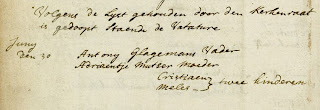 Volgens de Lyst gehouden door den Kerkenraat
is gedoopt staende de Vacature
Juny
den 30 Antony Glagemans Vader
Adriaentje Mutser Moeder
Cristiaen
Meles } twee kinderen